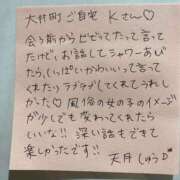 大井町ご自宅 Kさん♡
会う前からビビってたって言って
たけど、お話してシャワーあび
たら、しっぽいかわいいって言って
くれたりラブラブしてくれてうれし
かった♡ 風俗の女の子のイメージが
少しでも変わってくれたら
いいな!! 深い話もできて
楽しかったです!!
天月しゅう